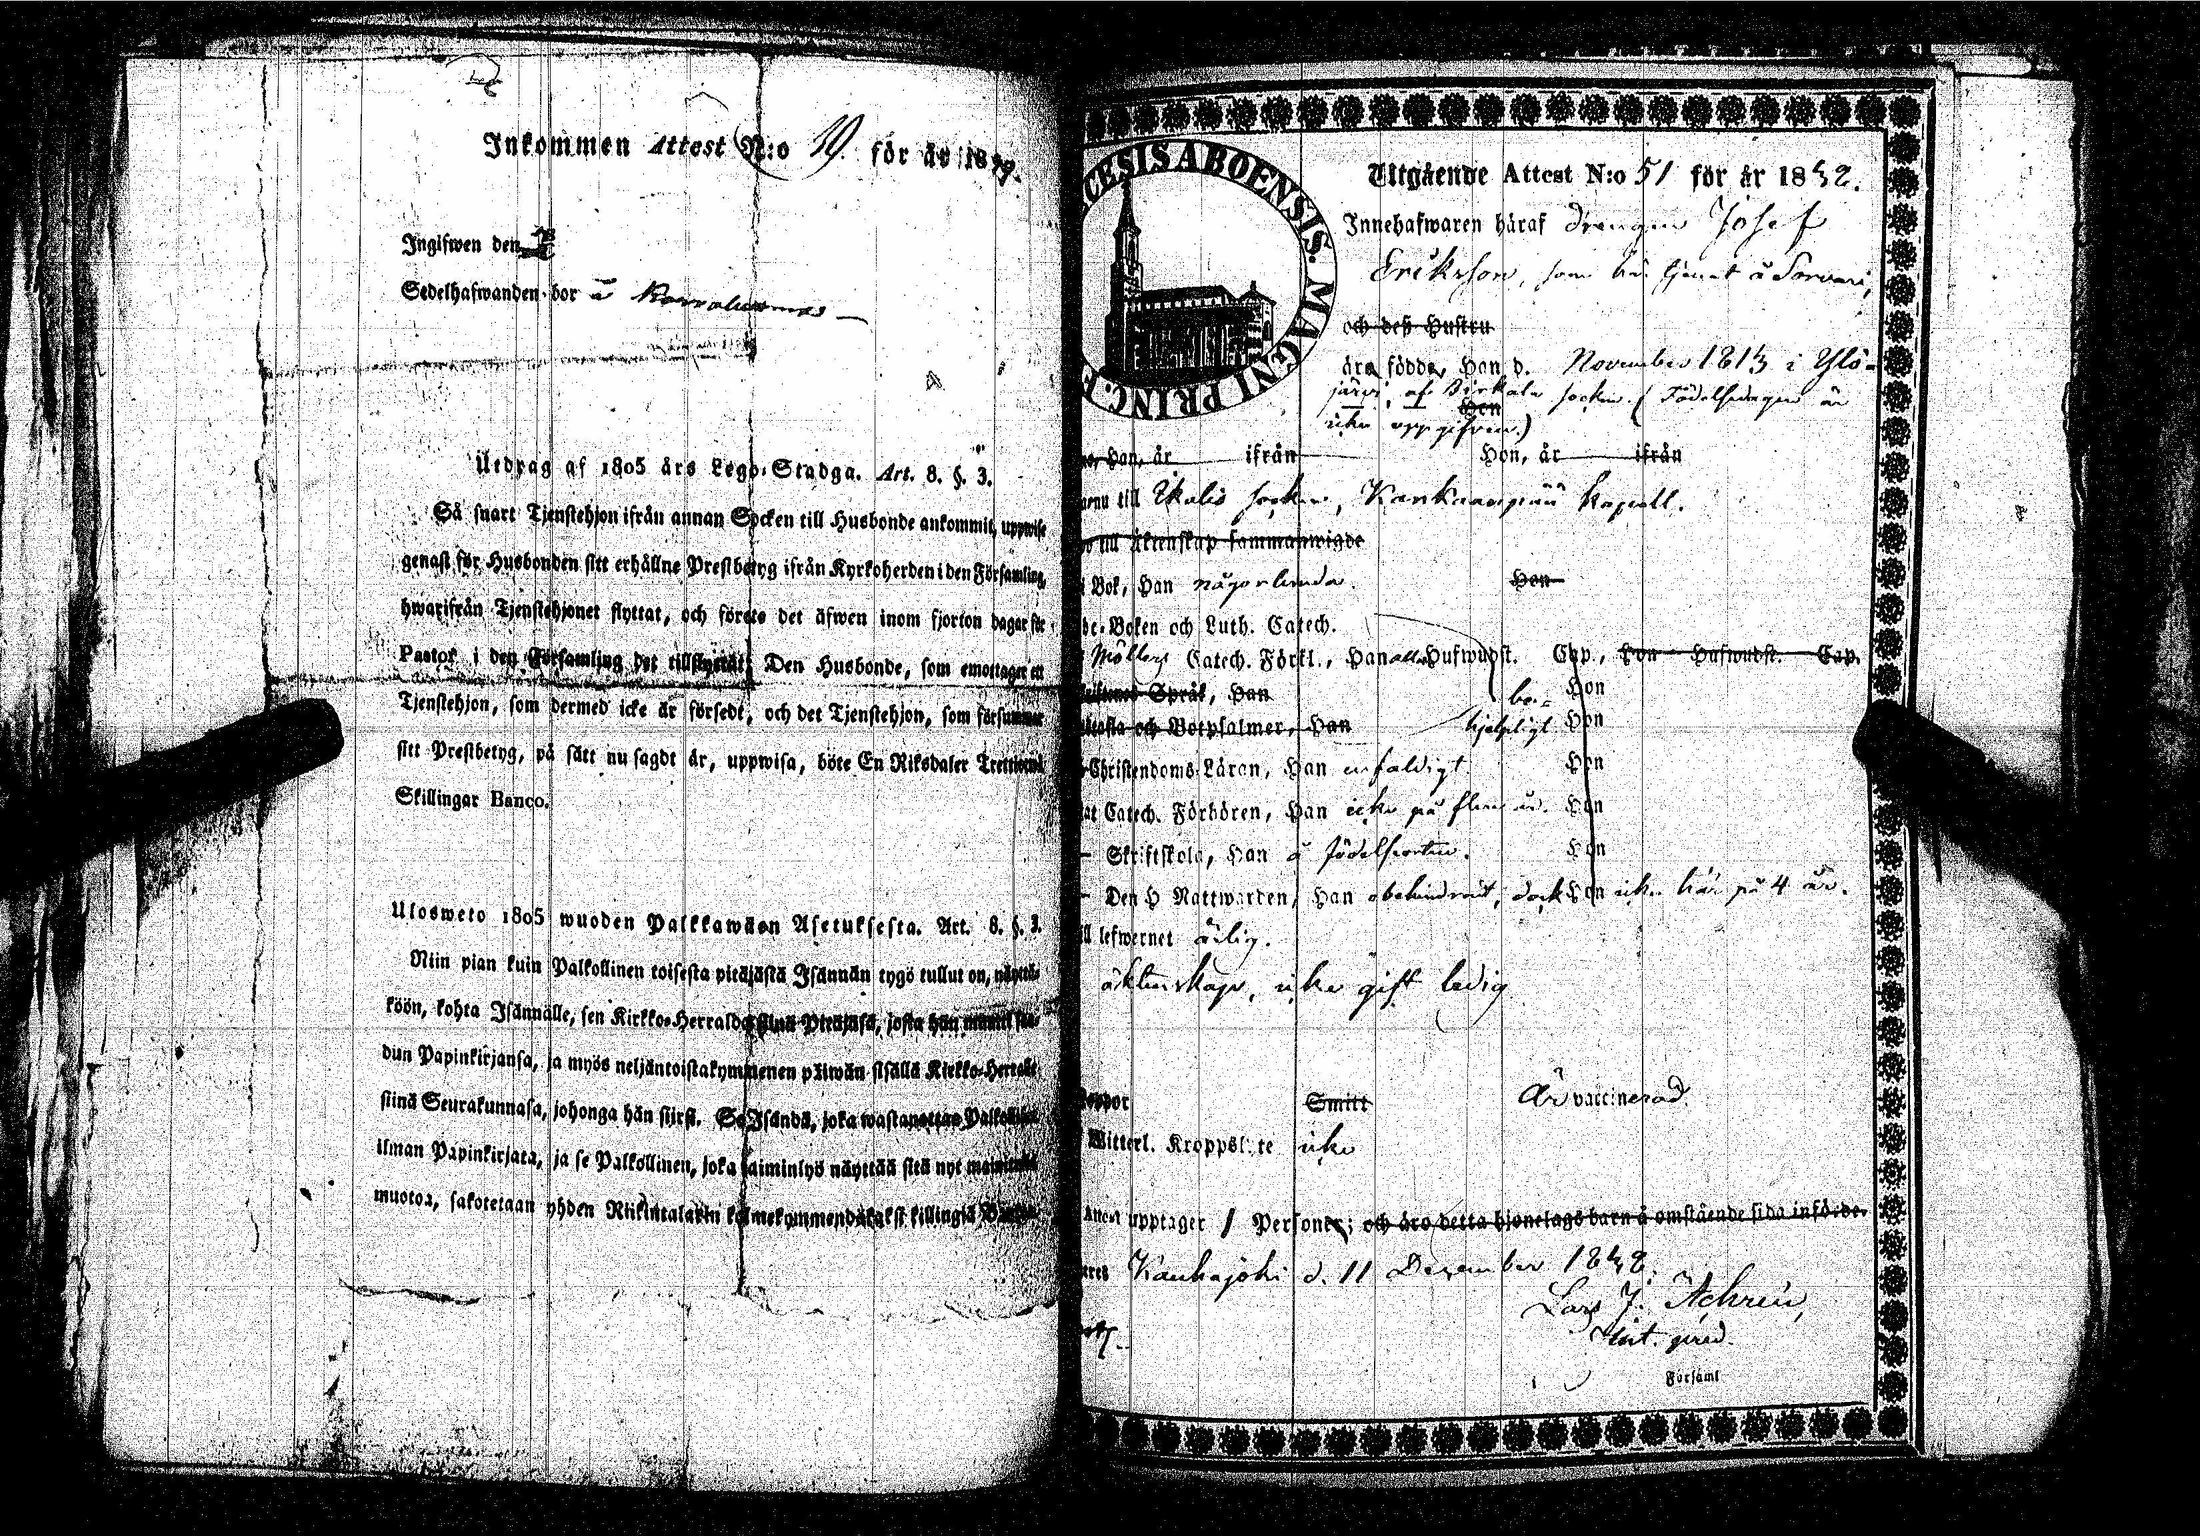 Inkommen Attest N:o 19. för år 1849.
Ingifwen den
Sedelhafwanden bor å
Utdrag af 1805 års Lego-Stadga. Art. 8. §. 3.
Så snart Tjenstehjon ifrån annan Socken till Husbonde ankommit, uppwise
genast för Husbonden sitt erhållne Prestbetyg ifrån Kyrkoherden i den Församling,
hwarifrån Tjenstehjonet flyttat, och förete det äfwen inom fjorton dagar för
Pastor i den Församling det tillflyttat; Den Husbonde, som emottager en
Tjenstehjon, som dermed icke är försedt, och det Tjenstehjon, som försummar
sitt Prestbetyg, på sätt nu sagdt är, uppwisa, böte En Riksdaler Trettiotvå
Skillingar Banco.
Ulosweto 1805 wuoden Palkkawäen Asetuksesta. Art. 8. §. 3.
Niin pian kuin Palkollinen toisesta pitäjästä Isännän tygö tullut on, näyttä-
köön, kohta Isännälle, sen Kirkko-Herralda siinä Pitäjäsä, josta hän muutti saa-
dun Papinkirjansa, ja myös neljäntoistakymmenen päiwän sisällä Kirkko-Herralle
siinä Seurakunnasa, johonga hän siirsi. Se Isändä, joka wastanottaa Palkollisen
ilman Papinkirjata, ja se Palkollinen, joka laiminlyö näyttää sitä nyt mainitulla
muotoa, sakotetaan yhden Riikintalarin kolmekymmendäkaksi killingiä Bancos.
DIOECESIS ABOENSIS. MAGNI PRINC. F
Utgående Attest N:o 51 för år 1848.
Innehafwaren häraf drengen Josef
Eriksson, som här tjenat å Sorvari,
och deß Hustru
äro födde, Han d. November 1813 i Ylö-
järvi, af Birkala socken. (Födelsedagen är
Hon
icke uppgifven.)
Han, år ifrån Hon, år ifrån
till Ikalis socken, Kankaanpää kapell.
till äktenskap sammanwigde
Bok, Han någorlunda. Hon
Boken och Luth. Catech.
Möllers Catech. Förkl., Han alla Hufwudst. Cap., Hon Hufwudst. Cap.
Språk, Han be- Hon
och Botpsalmer, Han hjelpligt Hon
Christendoms-Läran, Han enfaldigt Hon
Catech. Förhören, Han icke på flere år. Hon
Skriftskola, Han å födelseorten. Hon
Den H Nattwarden, Han obehindrat, dock Hon icke här på 4 år.
lefwernet ärlig.
äktenskap, icke gift ledig
Koppor Smitt Är vaccinerad.
Witterl. Kroppslyte icke
Attest upptager 1 Personer; och äro detta hjonelags barn å omstående sida införde.
Kauhajoki d. 11 December 1848.
Lars J. Achrén,
Församl